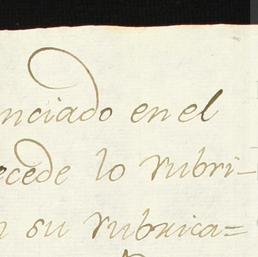 nciado en el
ecede lo rubri-
n su rubrica=